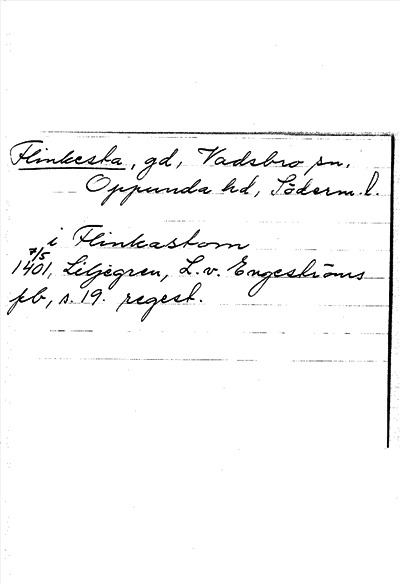 Flinkesta, gd, Vadsbro sn,
Oppunda hd, Söderm. l.
i Flinkastom
7/5
1401, Liljegren, L. v. Engeströms
pb, s. 19. regest.